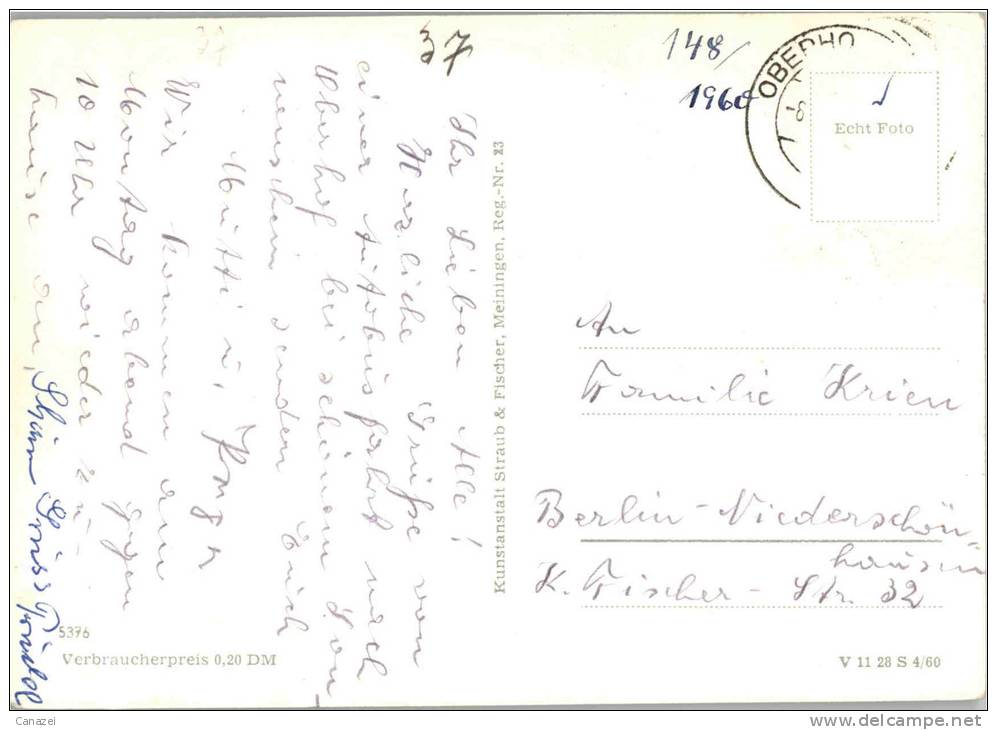 37
148/
1960
OBERHO
Echt Foto
Ihr Lieben Alle!
Herzliche Grüße von
einer Autobusfahrt nach
Oberhof bei schönem Son-
nenschein senden Euch
Mutti u.
Wir kommen am
Montag abend gegen
10 Uhr wieder zu-
hause an.
Kunstanstalt Straub & Fischer, Meiningen, Reg.-Nr. 23
An
Familie Krien
Berlin-Niederschön-
hausen
K. Fischer-Str. 32
5376
Verbraucherpreis 0,20 DM
V 11 28 S 4/60
Canazei
delcampe.net